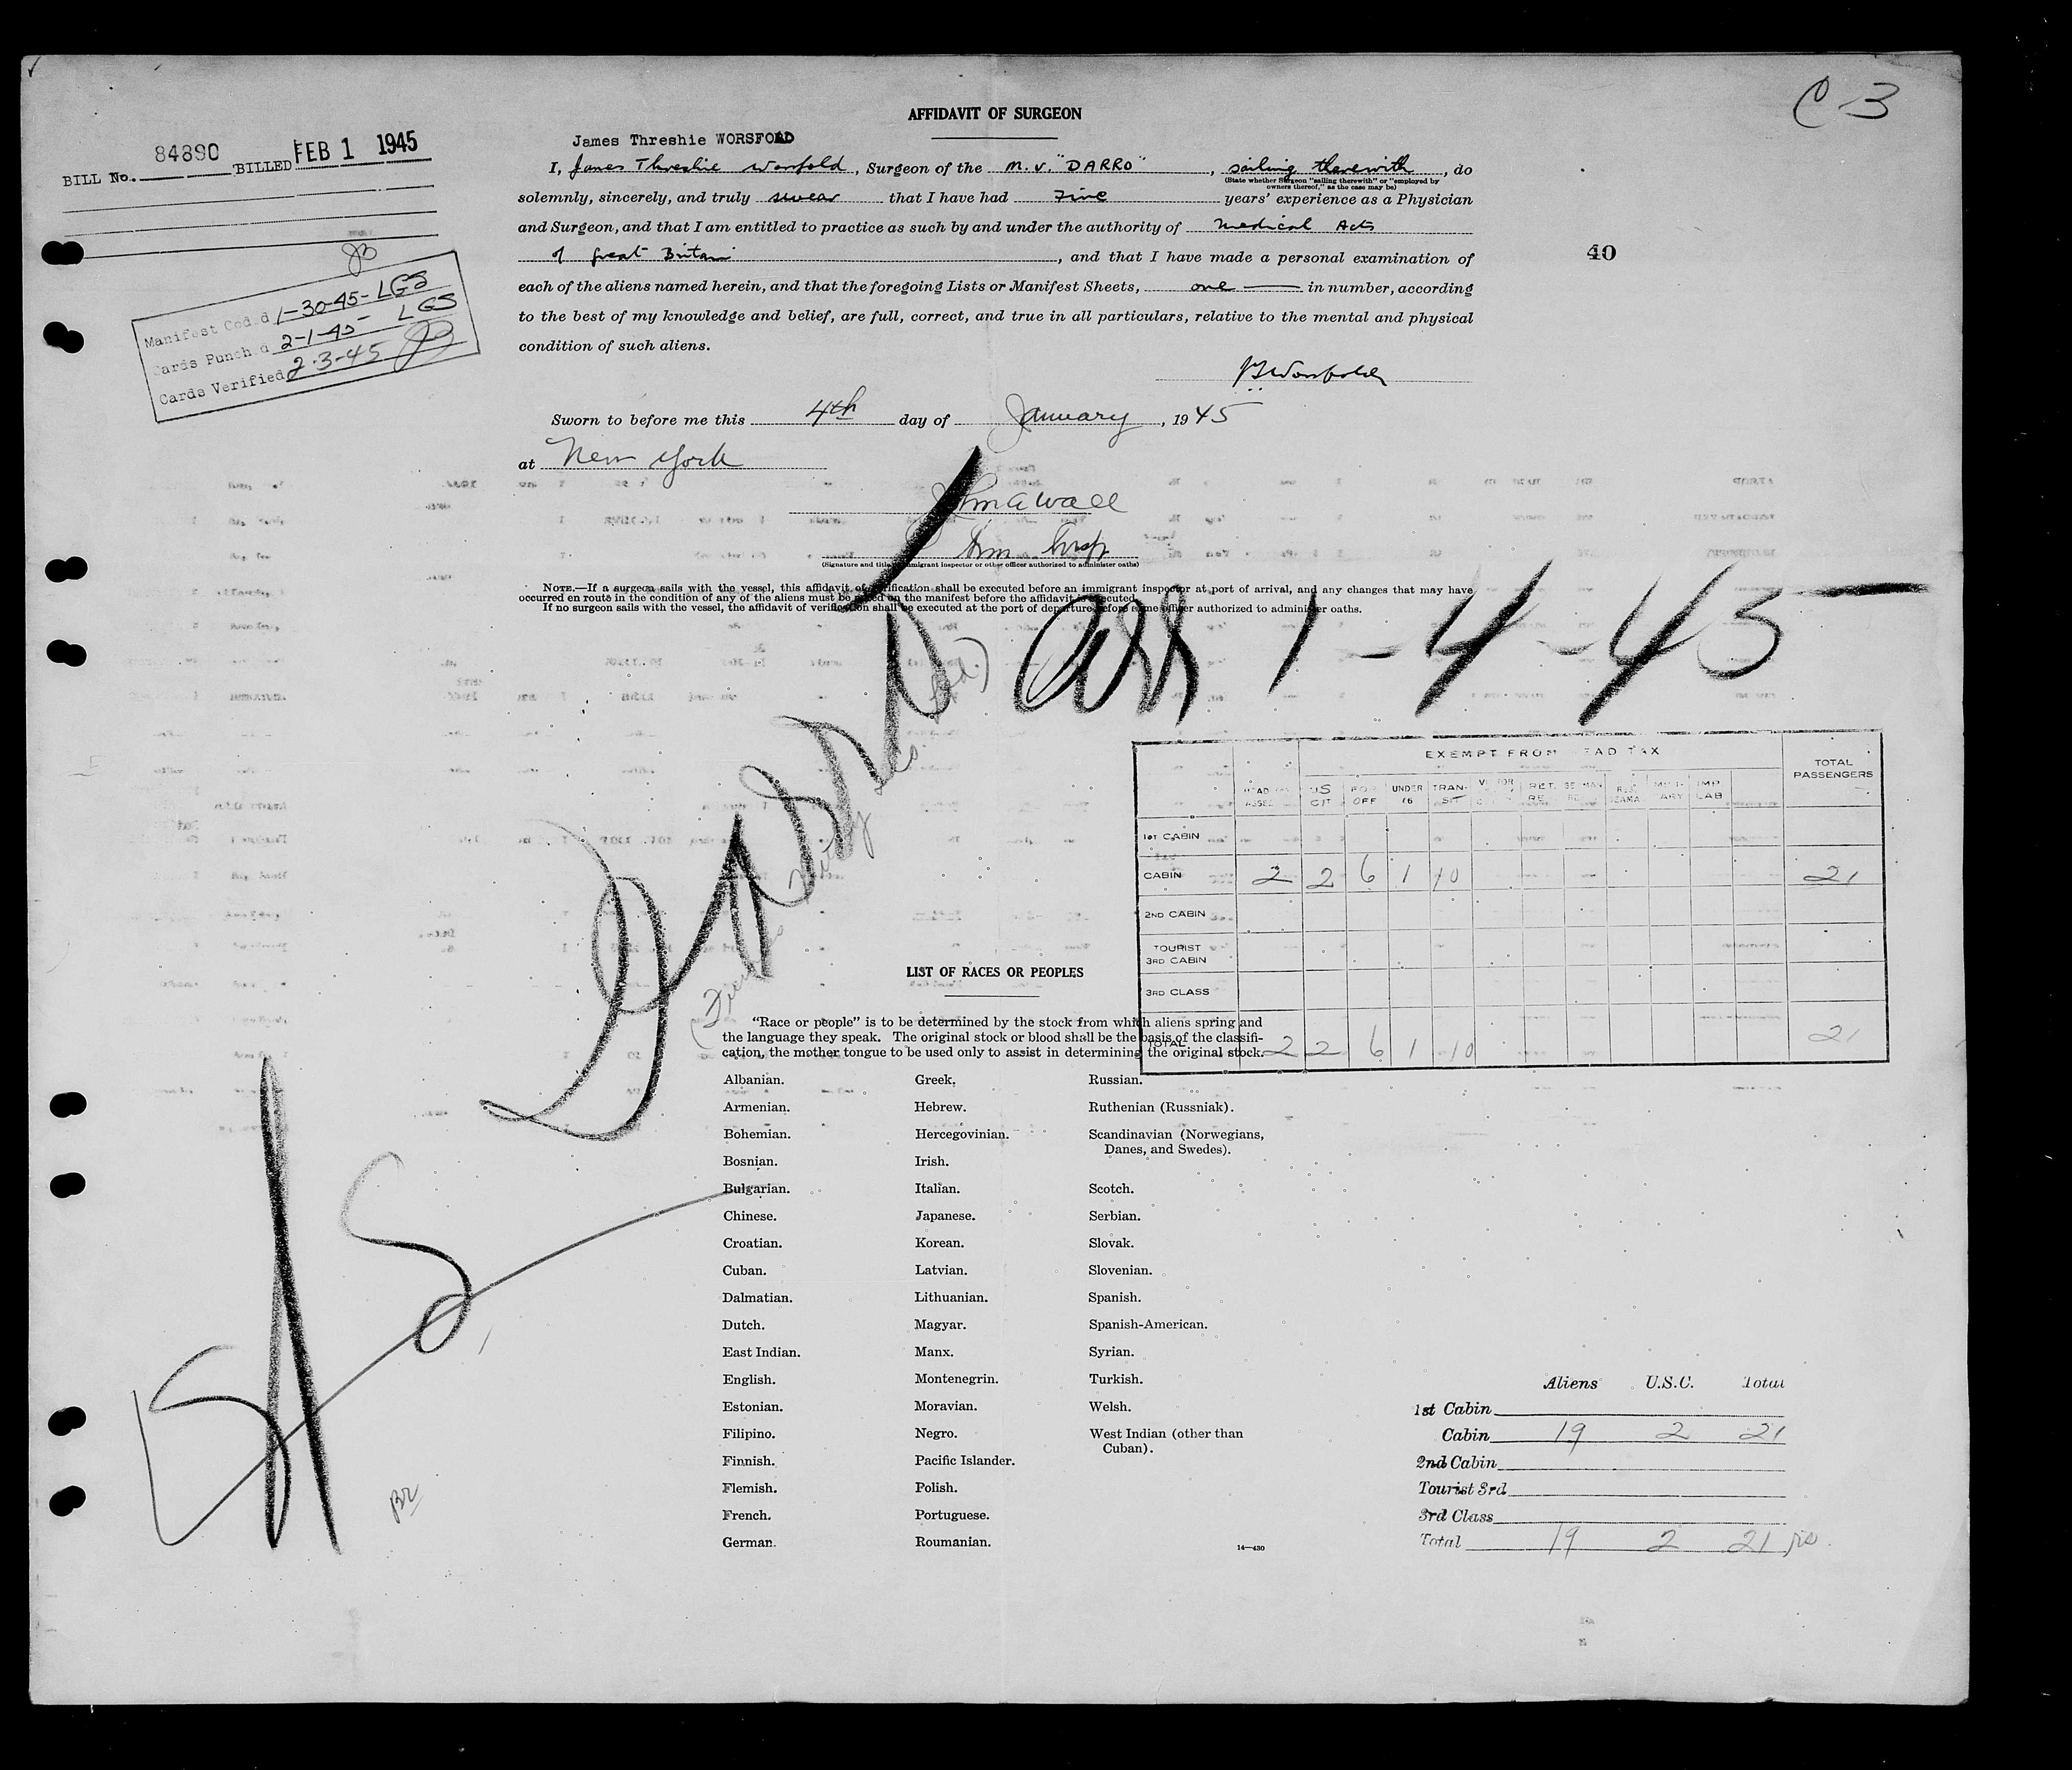 C 3
AFFIDAVIT OF SURGEON
BILL No. 84890 BILLED FEB 1 1945
James Threshie WORSFOLD
I, James Threshie Worsfold, Surgeon of the M.V. "DARRO", sailing therewith, do
(State whether Surgeon "sailing therewith" or "employed by
owners thereof," as the case may be)
solemnly, sincerely, and truly swear that I have had Five years' experience as a Physician
and Surgeon, and that I am entitled to practice as such by and under the authority of Medical Acts
of Great Britain, and that I have made a personal examination of
each of the aliens named herein, and that the foregoing Lists or Manifest Sheets, one in number, according
to the best of my knowledge and belief, are full, correct, and true in all particulars, relative to the mental and physical
condition of such aliens.
40
Manifest Coded 1-30-45-LGS
Cards Punched 2-1-45- LGS
Cards Verified 2-3-45
JTWorsfold
Sworn to before me this 4th day of January, 1945
at New York
John A Wall
Imm Insp
(Signature and title of immigrant inspector or other officer authorized to administer oaths)
NOTE.—If a surgeon sails with the vessel, this affidavit of verification shall be executed before an immigrant inspector at port of arrival, and any changes that may have
occurred en route in the condition of any of the aliens must be noted on the manifest before the affidavit is executed.
If no surgeon sails with the vessel, the affidavit of verification shall be executed at the port of departure before some officer authorized to administer oaths.
Darro
arr 1-4-45
EXEMPT FROM HEAD TAX
TOTAL PASSENGERS
HEAD TAX ASSES. US CIT FOR OFF UNDER 16 TRAN-SIT RET. RE. IMP LAB
1ST CABIN
CABIN 2 2 6 1 10 21
2ND CABIN
TOURIST
3RD CABIN
3RD CLASS
TOTAL 2 2 6 1 10 21
LIST OF RACES OR PEOPLES
"Race or people" is to be determined by the stock from which aliens spring and
the language they speak. The original stock or blood shall be the basis of the classifi-
cation, the mother tongue to be used only to assist in determining the original stock.
Albanian. Greek. Russian.
Armenian. Hebrew. Ruthenian (Russniak).
Bohemian. Hercegovinian. Scandinavian (Norwegians,
Danes, and Swedes).
Bosnian. Irish.
Bulgarian. Italian. Scotch.
Chinese. Japanese. Serbian.
Croatian. Korean. Slovak.
Cuban. Latvian. Slovenian.
Dalmatian. Lithuanian. Spanish.
Dutch. Magyar. Spanish-American.
East Indian. Manx. Syrian.
English. Montenegrin. Turkish.
Estonian. Moravian. Welsh.
Filipino. Negro. West Indian (other than
Cuban).
Finnish. Pacific Islander.
Flemish. Polish.
French. Portuguese.
German. Roumanian.
14—430
Aliens U.S.C. Total
1st Cabin
Cabin 19 2 21
2nd Cabin
Tourist 3rd
3rd Class
Total 19 2 21